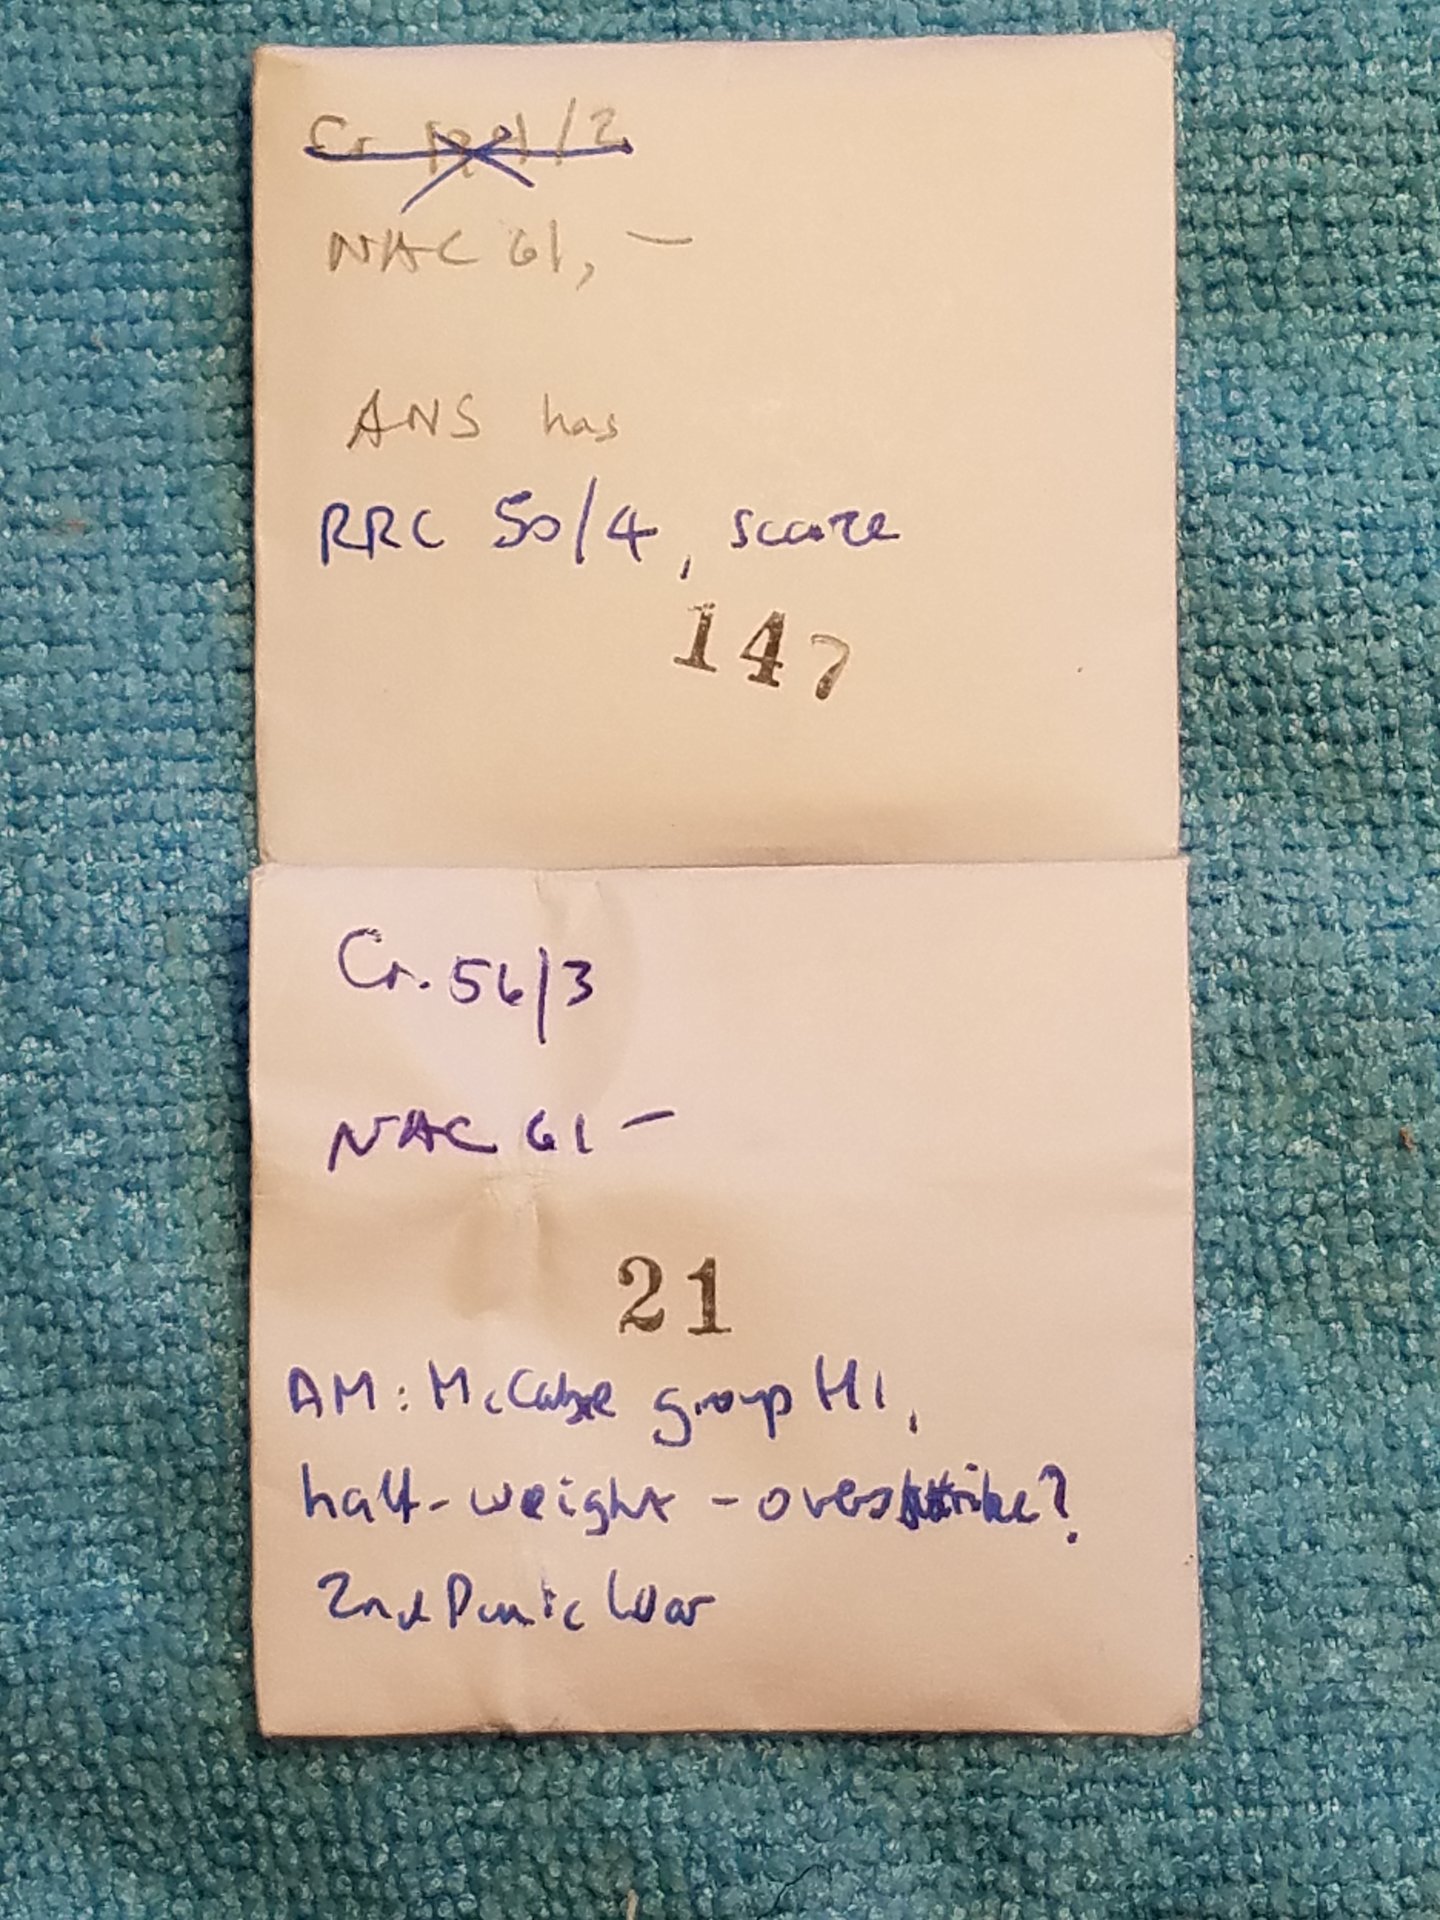 Cr. /2
NAC 61, —
ANS has
RRC 50/4, scarce
147
Cr. 56/3
NAC 61 —
21
AM: McCabe group H1,
half-weight - overstrike?
2nd Punic War